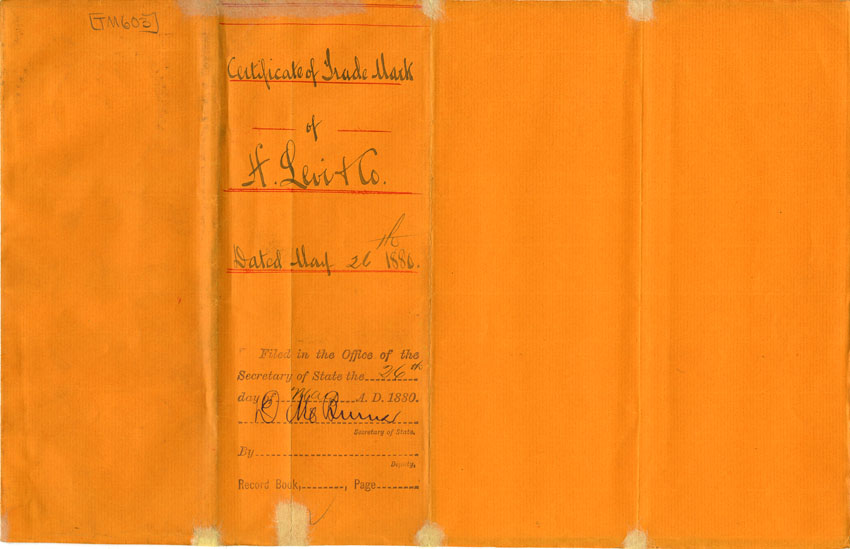 [TM603]
Certificate of Trade Mark
of
H. Levi & Co.
Dated May 26th 1880.
Filed in the Office of the
Secretary of State the 26th
day of May A. D. 1880.
D M Burns
Secretary of State.
By
Deputy,
Record Book, , Page